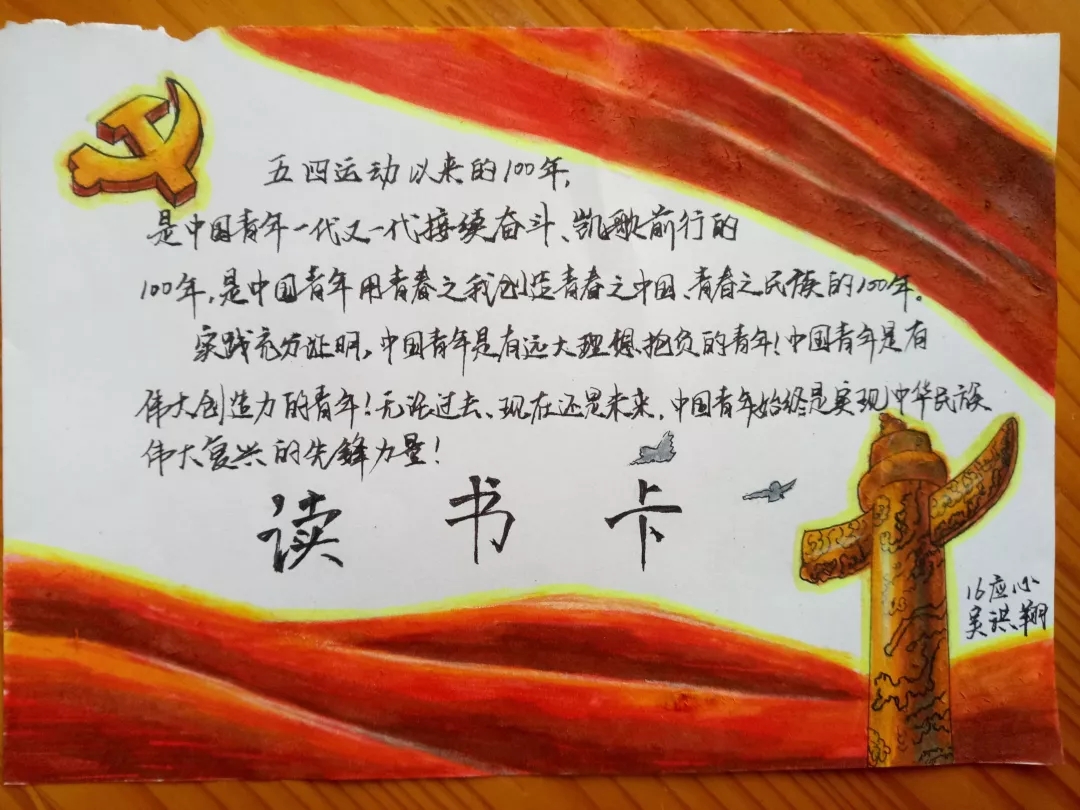 五四运动以来的100年，
是中国青年一代又一代接续奋斗、凯歌前行的
100年，是中国青年用青春之我创造青春之中国、青春之民族的100年。
实践充分证明，中国青年是有远大理想抱负的青年！中国青年是有
伟大创造力的青年！无论过去、现在还是未来，中国青年始终是实现中华民族
伟大复兴的先锋力量！
读书卡
16应心
吴洪翔